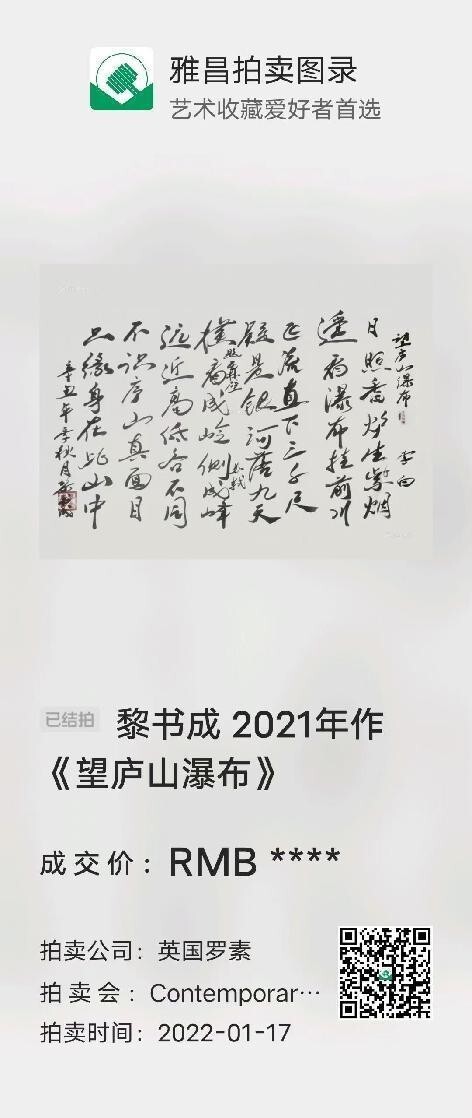 雅昌拍卖图录
艺术收藏爱好者首选
望庐山瀑布 李白
日照香炉生紫烟
遥看瀑布挂前川
飞流直下三千尺
疑是银河落九天
题西林壁 苏轼
横看成岭侧成峰
远近高低各不同
不识庐山真面目
只缘身在此山中
辛丑年季秋月
已结拍 黎书成 2021年作
《望庐山瀑布》
成交价：RMB ****
拍卖公司：英国罗素
拍卖会：Contemporar···
拍卖时间：2022-01-17